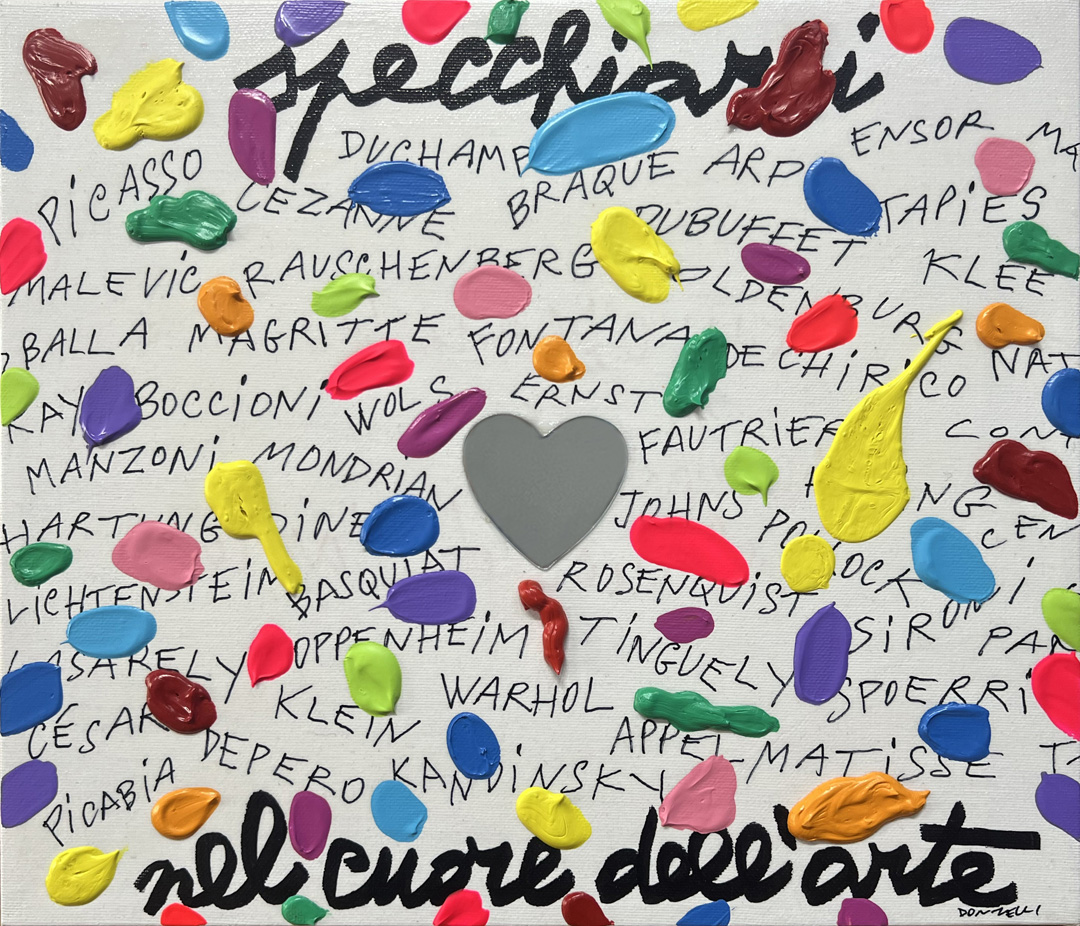 specchiarsi
DUCHAMP ENSOR MA
PiCASSO CEZANNE BRAQUE ARP TAPiES
DUBUFFET
MALEVIC RAUSCHENBERG OLDENBURG KLEE
BALLA MAGRITTE FONTANA DE CHiRiCO NAT
RAY BOCCiONi WOLS ERNST
MANZONi MONDRIAN FAUTRiER CONT
HARTUNG DiNE JOHNS POLLOCK NG CEN
LiCHTENSTEiN BASQUIAT ROSENQUiST SiRONi
VASARELY OPPENHEiM TiNGUELY PAN
CÉSAR KLEiN WARHOL SPOERRi
DEPERO APPEL MATiSSE
PiCABiA KANDiNSKY
nel cuore dell'arte
DONZELLI